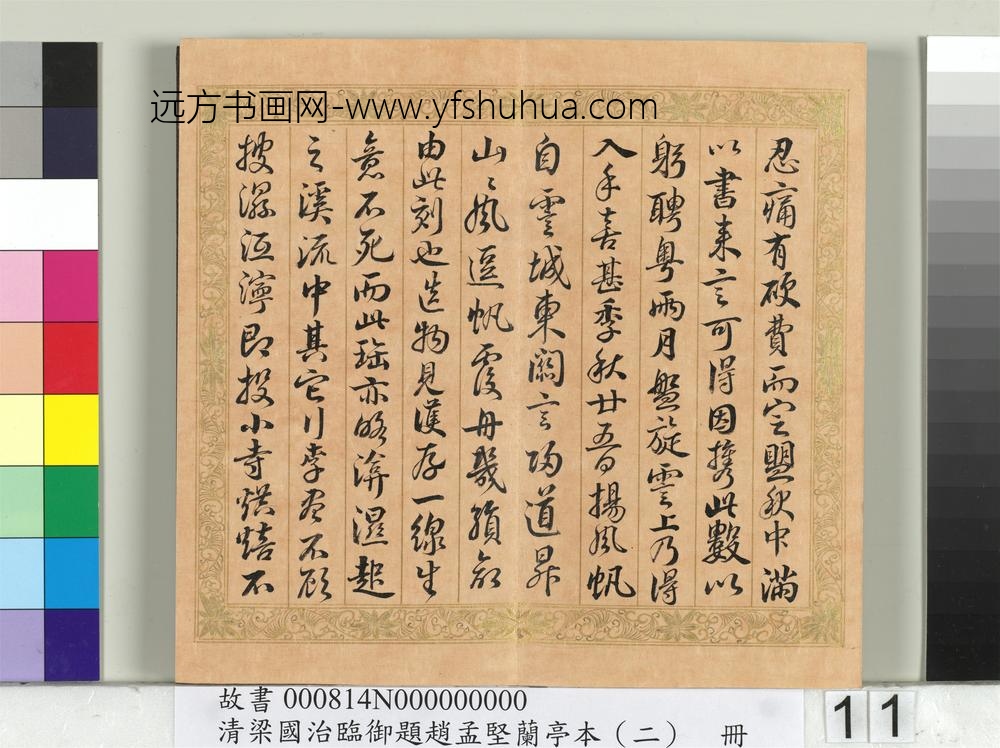 远方书画网-www.yfshuhua.com
忍痛有破費而定盟秋中滿
以書來言可得因攜此數以
躬聘粵兩月盤旋雲上乃得
入手喜甚季秋廿五日揚風帆
自雲城東言歸道昇
山〻風逗帆覆舟幾殞命
由此刻也造物見護存一線生
意不死而此亦略濕起
之溪流中其它行李不顧
濕濘即投小寺烘焙不
故書 000814N000000000
清梁國治臨御題趙孟堅蘭亭本(二) 冊
11